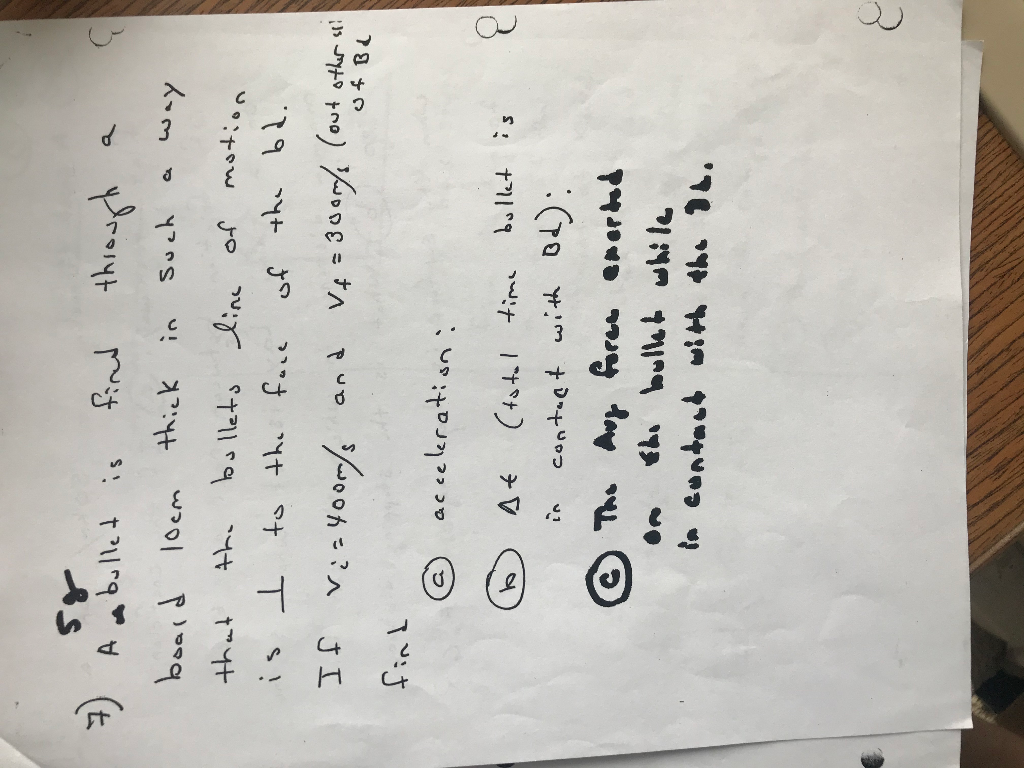 5g
7) A bullet is fired through a
board 10cm thick in such a way
that the bullets line of motion
is ⊥ to the face of the bd.
If vi = 400m/s and Vf = 300m/s (out other
of Bd
find
(a) acceleration:
(b) Δt (total time bullet is
in contact with Bd):
(c) The Avg force exerted
on the bullet while
in contact with the Bd.